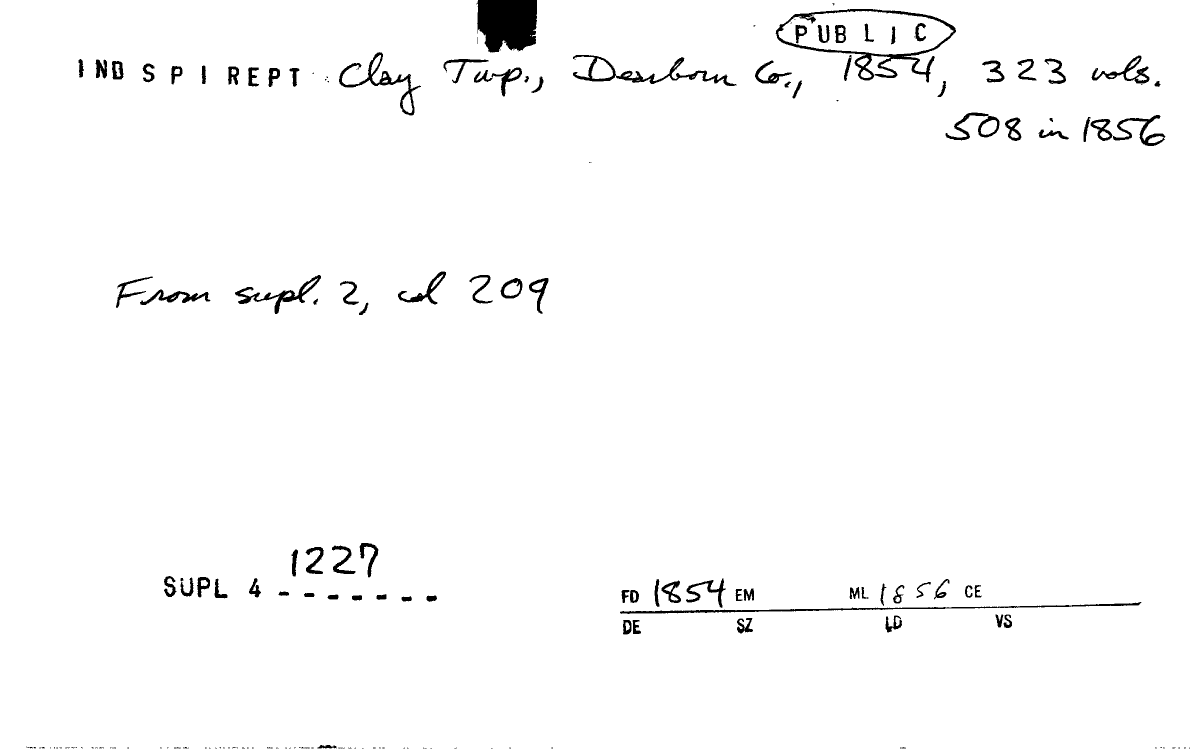 PUBLIC
IND SPI REPT Clay Twp., Dearborn Co., 1854, 323 vols.
508 in 1856
From supl. 2, col 209
1227
SUPL 4 - - - - - - -
FD 1854 EM ML 1856 CE
DE SZ LD VS